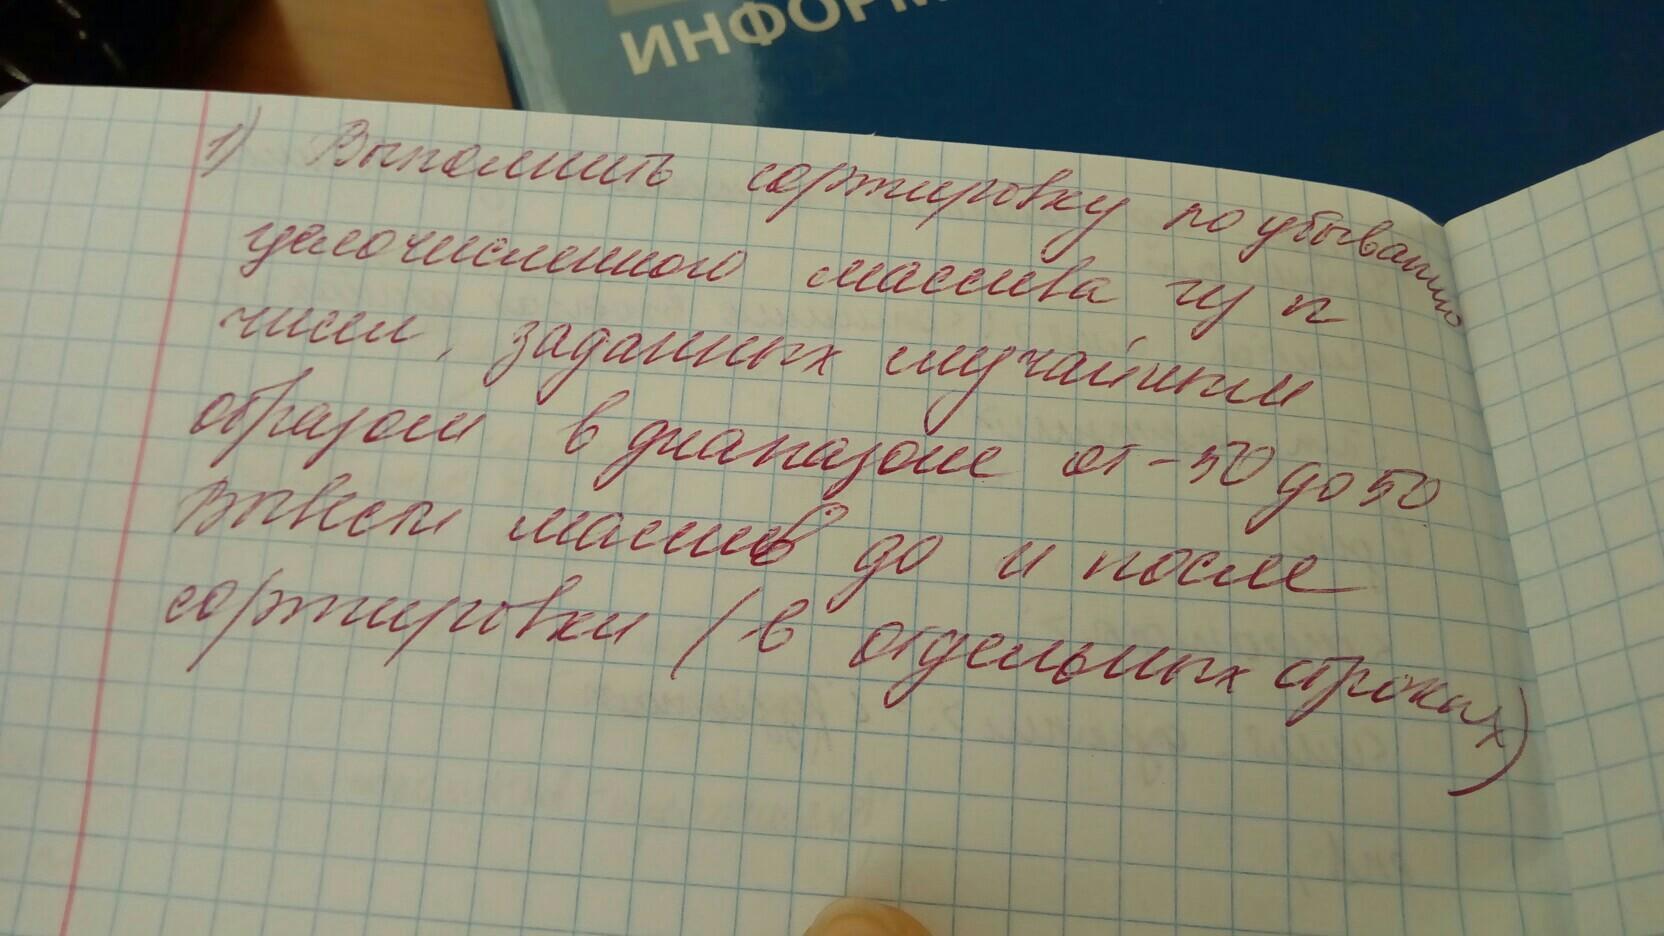 ИНФОРМ
1) Выполнить сортировку по убыванию
целочисленного массива из n
чисел, заданных случайным
образом в диапазоне от -50 до 50
Вывести массив до и после
сортировки (в отдельных строках)